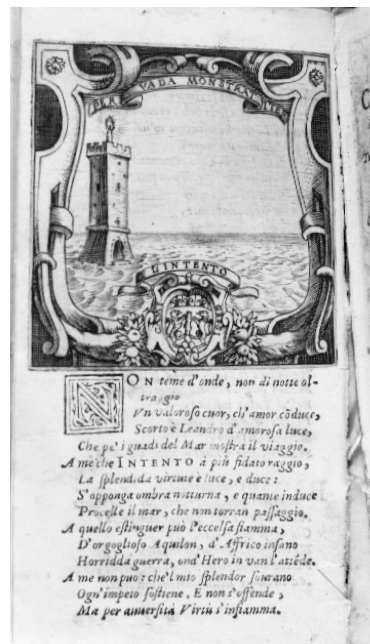 PER VADA MONSTRAT ITER
L'INTENTO
NON teme d'onde, non di notte ol-
traggio
Vn valoroso cuor, ch'amor cōduce,
Scorto è Leandro d'amorosa luce,
Che pe' i guadi del Mar mostra il viaggio.
A me che INTENTO à più fidato raggio,
La splendida virtute è luce, e duce:
S'opponga ombra notturna, e quante induce
Procelle il mar, che non torran passaggio.
A quello estinguer può l'eccelsa fiamma,
D'orgoglioso Aquilon, d'Affrico insano
Horridda guerra, ond'Hero in van l'attēde.
A me non può: che'l mio splendor sourano
Ogn'impeto sostiene. E non s'offende,
Ma per auuersità Virtù s'infiamma.